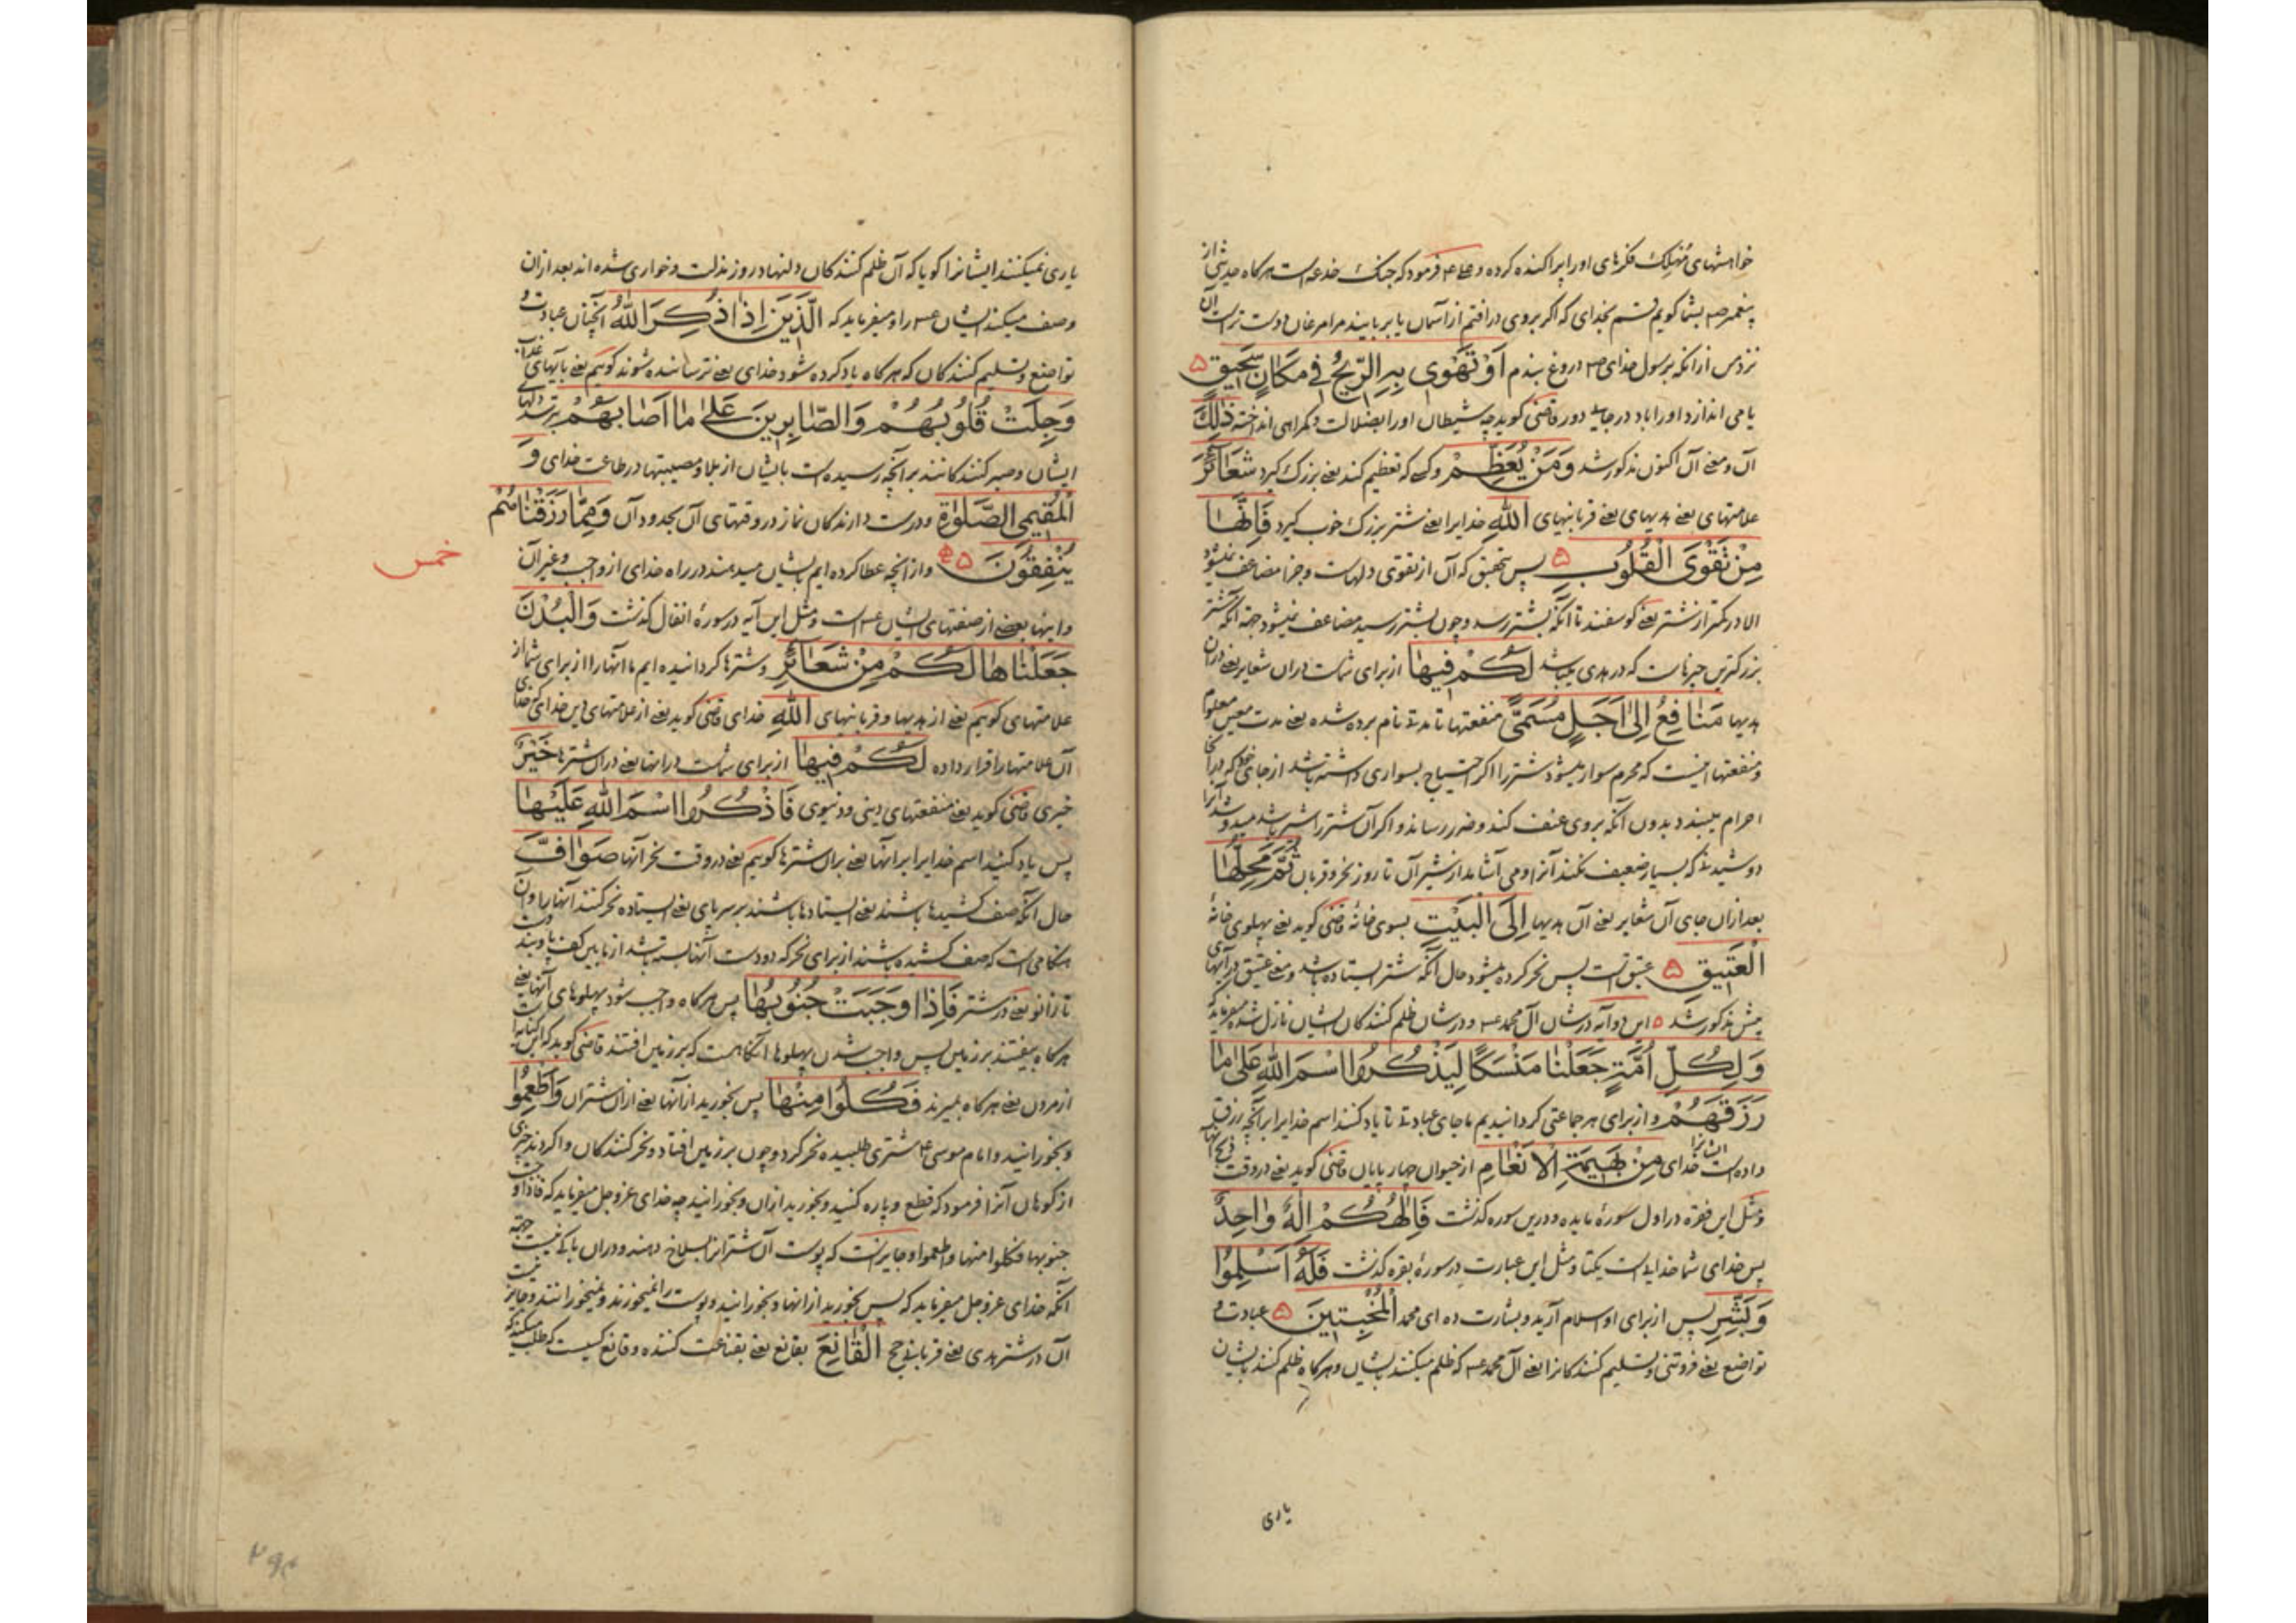 خواهشهای مهلک فکرهای اورا پراکنده کرده و ع فرمود که جنک خدعه است هرکاه حدیثی از
پیغمبر ص بشما کویم قسم بخدای که اکر بروی در افتم از آسمان یا بربایند مرا مرغان دوست تر است آن
نزد من از انکه برسول خدای ص دروغ بندم أَوْ تَهْوِی بِهِ الرِّیحُ فِی مَکَانٍ سَحِیقٍ ۵
یا می اندازد اورا باد در جای دور قاضی کوید چه شیطان اورا بضلالت و کمراهی انداخته ذَلِکَ
آن و معنی آن اکنون مذکور شد وَمَنْ یُعَظِّمْ و کسی که تعظیم کند یعنی بزرک کیرد شَعَائِرَ
علامتهای یعنی هدیهای یعنی قربانیهای اللهِ خدایرا یعنی شتر بزرک خوب کیرد فَإِنَّهَا
مِنْ تَقْوَی الْقُلُوبِ ۵ پس بتحقیق که آن از تقوی دلهاست و جزا مضاعف میشود
الا در کمتر از شتر یعنی کوسفند تا آنکه بشتر رسد و چون بشتر رسید مضاعف نمیشود جهة آنکه شتر
بزرکترین چیزهاست که در هدی میباشد لَکُمْ فِیهَا از برای شماست دران شعایر یعنی دران
هدیها مَنَافِعُ إِلَی أَجَلٍ مُسَمًّی منفعتها تا مدتی نام برده شده یعنی مدت معین معلوم
و منفعتها اینست که محرم سوار میشود شتر را اکر احتیاج بسواری داشته باشد از جای خود که در آنجا
احرام میبندد بدون آنکه بروی عنف کند و ضرر رساند و اکر آن شتر را شیر باشد میدوشد آنرا
دوشیدنی که بسیار ضعیف نکند آنرا و می آشامد از شیر آن تا روز نحر و قربان ثُمَّ مَحِلُّهَا
بعد ازان جای آن شعایر یعنی آن هدیها إِلَی الْبَیْتِ بسوی خانهٔ قاضی کوید یعنی پهلوی خانهٔ
الْعَتِیقِ ۵ عتیق است پس نحر کرده میشود حال آنکه شتر ایستاده باشد و معنی عتیق در آیهای
پیش مذکور شد ۵ این دو آیه در شان آل محمد ع و در شان ظلم کنندکان بایشان نازل شده میفرماید که
وَلِکُلِّ أُمَّةٍ جَعَلْنَا مَنْسَکًا لِیَذْکُرُوا اسْمَ اللهِ عَلَی مَا
رَزَقَهُمْ و از برای هر جماعتی کردانیدیم ما جای عبادتی تا یاد کنند اسم خدایرا بر آنچه رزق
داده است ایشانرا خدای مِنْ بَهِیمَةِ الْأَنْعَامِ از حیوان چهار پایان قاضی کوید یعنی در وقت ذبح آنها
و مثل این فقره در اول سورهٔ مایده و درین سوره کذشت فَإِلَهُکُمْ إِلَهٌ وَاحِدٌ
پس خدای شما خدایست یکتا و مثل این عبارت در سورهٔ بقره کذشت فَلَهُ أَسْلِمُوا
وَبَشِّرِ پس از برای او اسلام آرید و بشارت ده ای محمد الْمُخْبِتِینَ ۵ عبادت و
تواضع یعنی فروتنی و تسلیم کنندکانرا یعنی آل محمد ع که ظلم میکنند بایشان و هرکاه ظلم کنند بایشان
یاری
یاری نمیکنند ایشانرا کویا که آن ظلم کنندکان و لنها در روز مذلت و خواری شده اند بعد ازان
وصف میکند ایشان ع را و میفرماید که الَّذِینَ إِذَا ذُکِرَ اللهُ آنچنان عبادت و
تواضع و تسلیم کنندکان که هرکاه یاد کرده شود خدای یعنی ترساننده شوند کویم یعنی بآیهای عذاب
وَجِلَتْ قُلُوبُهُمْ وَالصَّابِرِینَ عَلَی مَا أَصَابَهُمْ بترسد دلهای
ایشان و صبر کنندکانند بر آنچه رسیده است بایشان از بلا و مصیبتها در طاعت خدای وَ
الْمُقِیمِی الصَّلَوةِ و درست دارندکان نماز در وقتهای آن بحدود آن وَمِمَّا رَزَقْنَاهُمْ
یُنْفِقُونَ ۵ و از آنچه عطا کرده ایم بایشان میدهند در راه خدای از واجب و غیر آن
خمس
و اینها بعضی از صفتهای ایشان ع است و مثل این آیه در سورهٔ انفال کذشت وَالْبُدْنَ
جَعَلْنَاهَا لَکُمْ مِنْ شَعَائِرِ و شترها کردانیده ایم ما آنهارا از برای شما از
علامتهای کویم یعنی از هدیها و قربانیهای اللهِ خدای قاضی کوید یعنی از علامتهای دین خدای که خدای
آن علامتهارا قرار داده لَکُمْ فِیهَا از برای شماست در آنها یعنی دران شترها خَیْرٌ
خیری قاضی کوید یعنی منفعتهای دینی و دنیوی فَاذْکُرُوا اسْمَ اللهِ عَلَیْهَا
پس یاد کنید اسم خدایرا بر آنها یعنی بران شترها کویم یعنی در وقت نحر آنها صَوَافَّ
حال آنکه صف کشیدها باشند یعنی ایستادها باشند بر سر پای یعنی ایستاده نحر کنند آنهارا و آن
هنکامی است که صف کشیده باشند از برای نحر که دو دست آنها بسته باشد از مابین کف پا و بند دست
تا زانو یعنی در شتر فَإِذَا وَجَبَتْ جُنُوبُهَا پس هرکاه واجب شود پهلوهای آنها یعنی
هرکاه بیفتند بر زمین پس واجب شدن پهلوها آنکاهست که بر زمین افتند قاضی کوید که این کنایه است
از مردن یعنی هرکاه بمیرند فَکُلُوا مِنْهَا پس بخورید از آنها یعنی ازان شتران وَأَطْعِمُوا
و بخورانید و امام موسی ع شتری طلبیده نحر کرد و چون بر زمین افتاد و نحر کنندکان وا کردند چیزی
از کوهان آنرا فرمود که قطع و پاره کنید و بخورید ازان و بخورانید چه خدای عزوجل میفرماید که فاذا وجبت
جنوبها فکلوا منها واطعموا و جایز است که پوست آن شتر را بسلاخ دهند و دران باکی نیست جهة
آنکه خدای عزوجل میفرماید که پس بخورید از آنها و بخورانید و پوست را نمیخورند و نمیخورانند و جایز نیست
آن در شتر هدی یعنی قربانی حج الْقَانِعَ بقانع یعنی بقناعت کننده و قانع کسیست که طلب میکند که